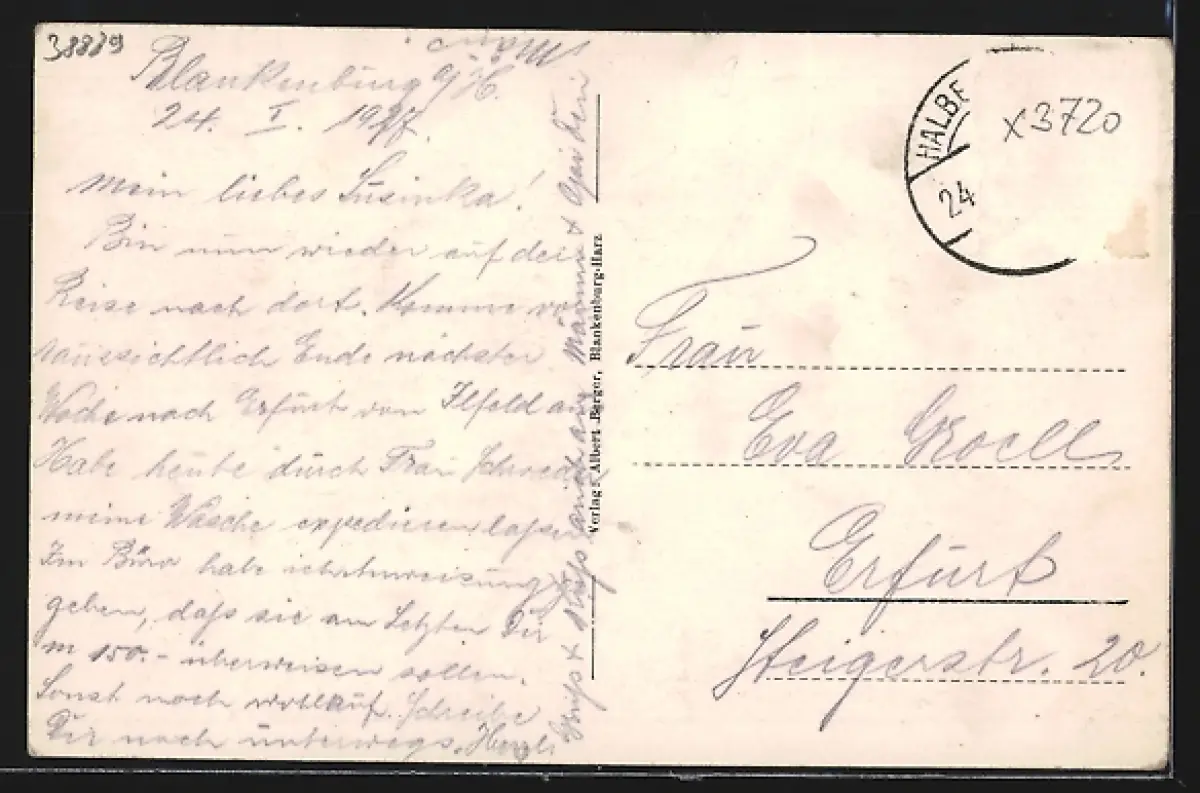 38889
Blankenburg a/H.
24. I. 1927.
Mein liebes Susinka!
Bin nun wieder auf der
Reise nach dort. Komme vo-
raussichtlich Ende nächster
Woche nach Erfurt von Ilfeld aus
Habe heute durch Frau
meine Wäsche expedieren laßen
Im Büro habe ich Anweisung ge-
geben, daß sie am Letzten Dir
M 150.- überweisen sollen.
Sonst noch wohlauf. Schreibe
Dir noch unterwegs. Herzl.
Gruß + Kuß auch an
Verlag: Albert Berger, Blankenburg-Harz
HALBE
24
x3720
Frau
Eva Groell
Erfurt
Steigerstr. 20.